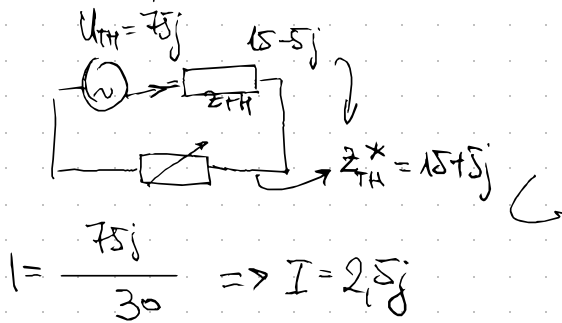 U_TH = 75j
15-5j
~
Z_TH
Z*_TH = 15+5j
I = 75j / 30 => I = 2,5j